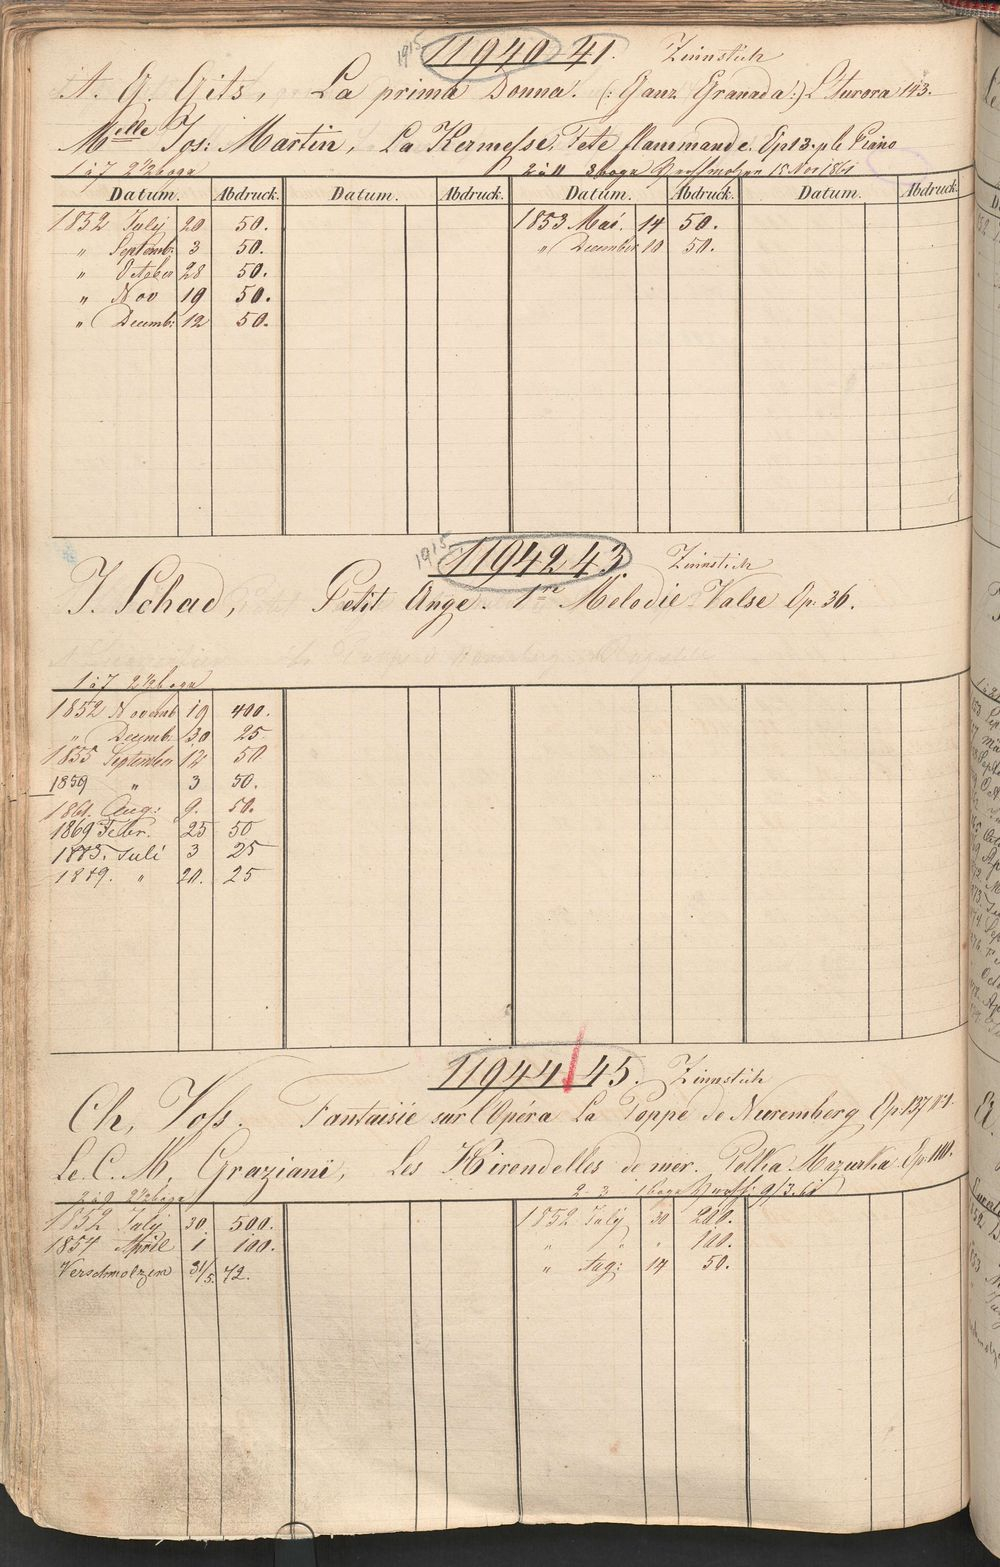 1915 11940-41. Zinnstich
A. G. Gits, La prima Donna. (: Ganz Granada :) L'Aurora 143.
Melle Jos: Martin, La Kermesse, Fete flammande. Op 13. p le Piano
1 à 7 2 1/2 boga 2 à 11 3 boga Verschmolzen 15 Nov 1861
Datum. Abdruck. Datum. Abdruck. Datum. Abdruck. Datum. Abdruck.
1852 July 20 50. 1853 Mai. 14 50.
" Septemb: 3 50. " December 10 50.
" October 28 50.
" Nov 19 50.
" Decemb: 12 50.
1915 11942 43 Zinnstich
J. Schad, Petit Ange. 1re Melodie-Valse Op. 36.
1 à 7 2 1/2 boga
1852 Novemb 19 400.
" Decemb. 30 25
1855 September 12 50
1859 " 3 50.
1861. Aug: 9. 50.
1869 Febr. 25 50
1873. Juli 3 25
1879. " 20. 25
11944/45. Zinnstich
Ch, Voss. Fantaisie sur l'Opéra La Poppé de Nuremberg Op 137 No 1.
Le C. M, Graziani, Les Hirondelles de mer. Polka Mazurka Op: 110.
2 à 9 2 1/2 boga 2. 3 1 boga 9/3. 61
1852 July 30. 500. 1852 July 30 200.
1854 April 1 100. " " " 100.
Verschmolzen 31/5. 72. " Aug: 14 50.